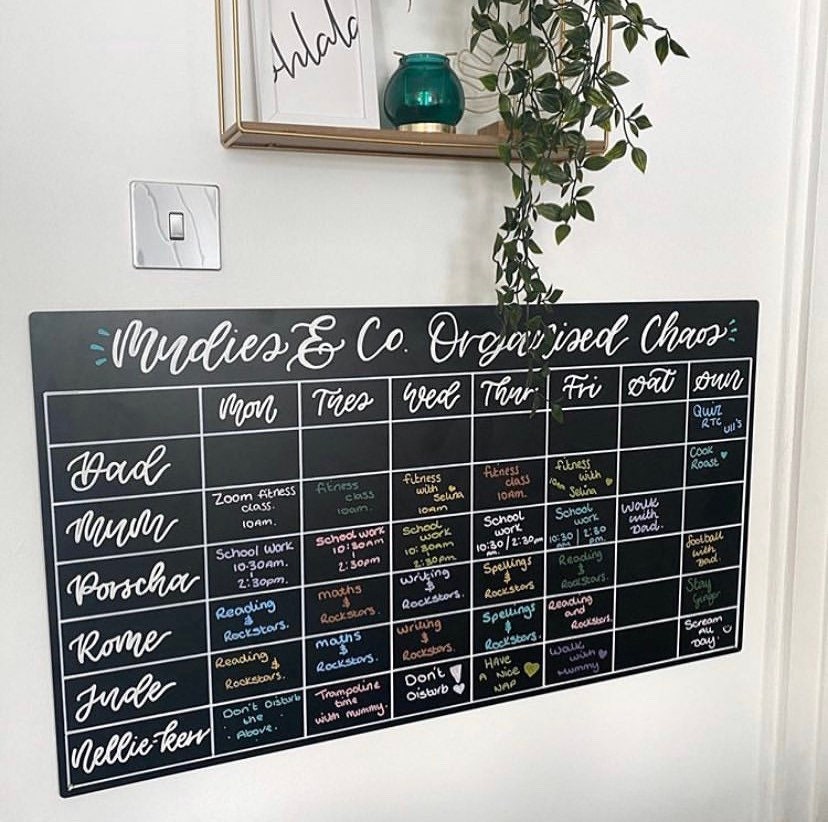 ohlala
Mudies & Co. Organised Chaos
Mon Tues Wed Thur Fri Sat Sun
Dad
Quiz
RTC
Mum
Zoom fitness
class.
10am.
fitness
class
10am.
fitness
with
Selina
10AM
fitness
class
10AM.
fitness
with
10am Selina
Cook
Roast
Porscha
School Work
10:30AM.
2:30pm.
School work
10:30am
2:30pm
School
work
10:30am
2:30pm
School
work
10:30am./2:30pm
School
work
10:30am/2:30pm
Walk
with
Dad.
Rome
Reading
&
Rockstars.
maths
&
Rockstars.
Writing
&
Rockstars.
Spellings
&
Rockstars
Reading
&
Rockstars.
football
with
Dad.
Jude
Reading
&
Rockstars.
maths
&
Rockstars.
writing
&
Rockstars.
Spellings
&
Rockstars.
Reading
and
Rockstars.
Stay
Ginger
Nellie-kerr
Don't Disturb
the
Above.
Trampoline
time
with mummy.
Don't
Disturb!
HAVE
A NICE
NAP
Walk
with
Mummy
Scream
All
Day.